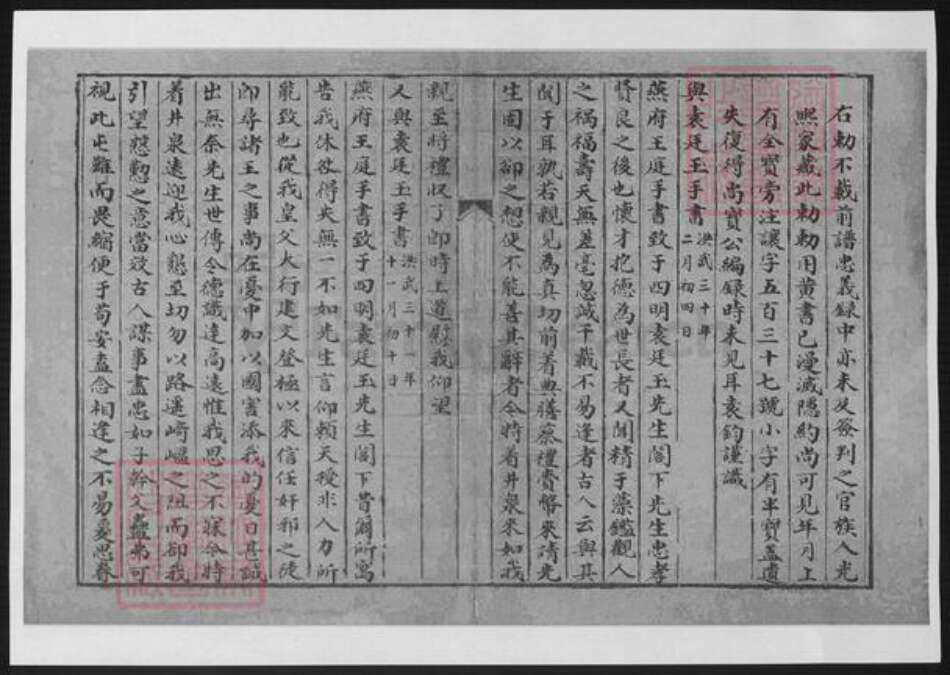 右勅不載前譜忠義錄中亦未及簽判之官族人光
熙家藏此勅勅用黃書已漫滅隱約尚可見年月上
有全寶旁注讓字五百三十七號小字有半寶蓋遺
失復得尚寶公編錄時未見耳袁鈞謹識
與袁廷玉手書 洪武三十年二月初四日
燕府王庭手書致于四明袁廷玉先生閣下先生忠孝
賢良之後也懷才抱德為世長者又聞精于藻鑑觀人
之禍福壽夭無差毫忽誠千載不易逢者古人云與其
聞于耳孰若親見為真切前着典膳蔡禮賚幣來請先
生固以卻之想使不能善其辭者今時着井泉來如我
親至將禮収了即時上道慰我仰望
又與袁廷玉手書 洪武三十一年十一月初十日
燕府王庭手書致于四明袁廷玉先生閣下昔爾所寫
告我休咎得失無一不如先生言仰賴天授非人力所
能致也從我皇父大行建文登極以來信任奸邪之徒
即尋諸王之事尚在憂中加以國害添我的憂日甚誠
出無奈先生世傳令德識達高遠惟我思之不寐令特
着井泉遠迎我心懇至切勿以路遙崎嶇之阻而卻我
引望懇懃之意當效古人謀事盡忠如子幹父蠱弗可
視此屯難而畏縮便于苟安盍念相逢之不易憂思眷